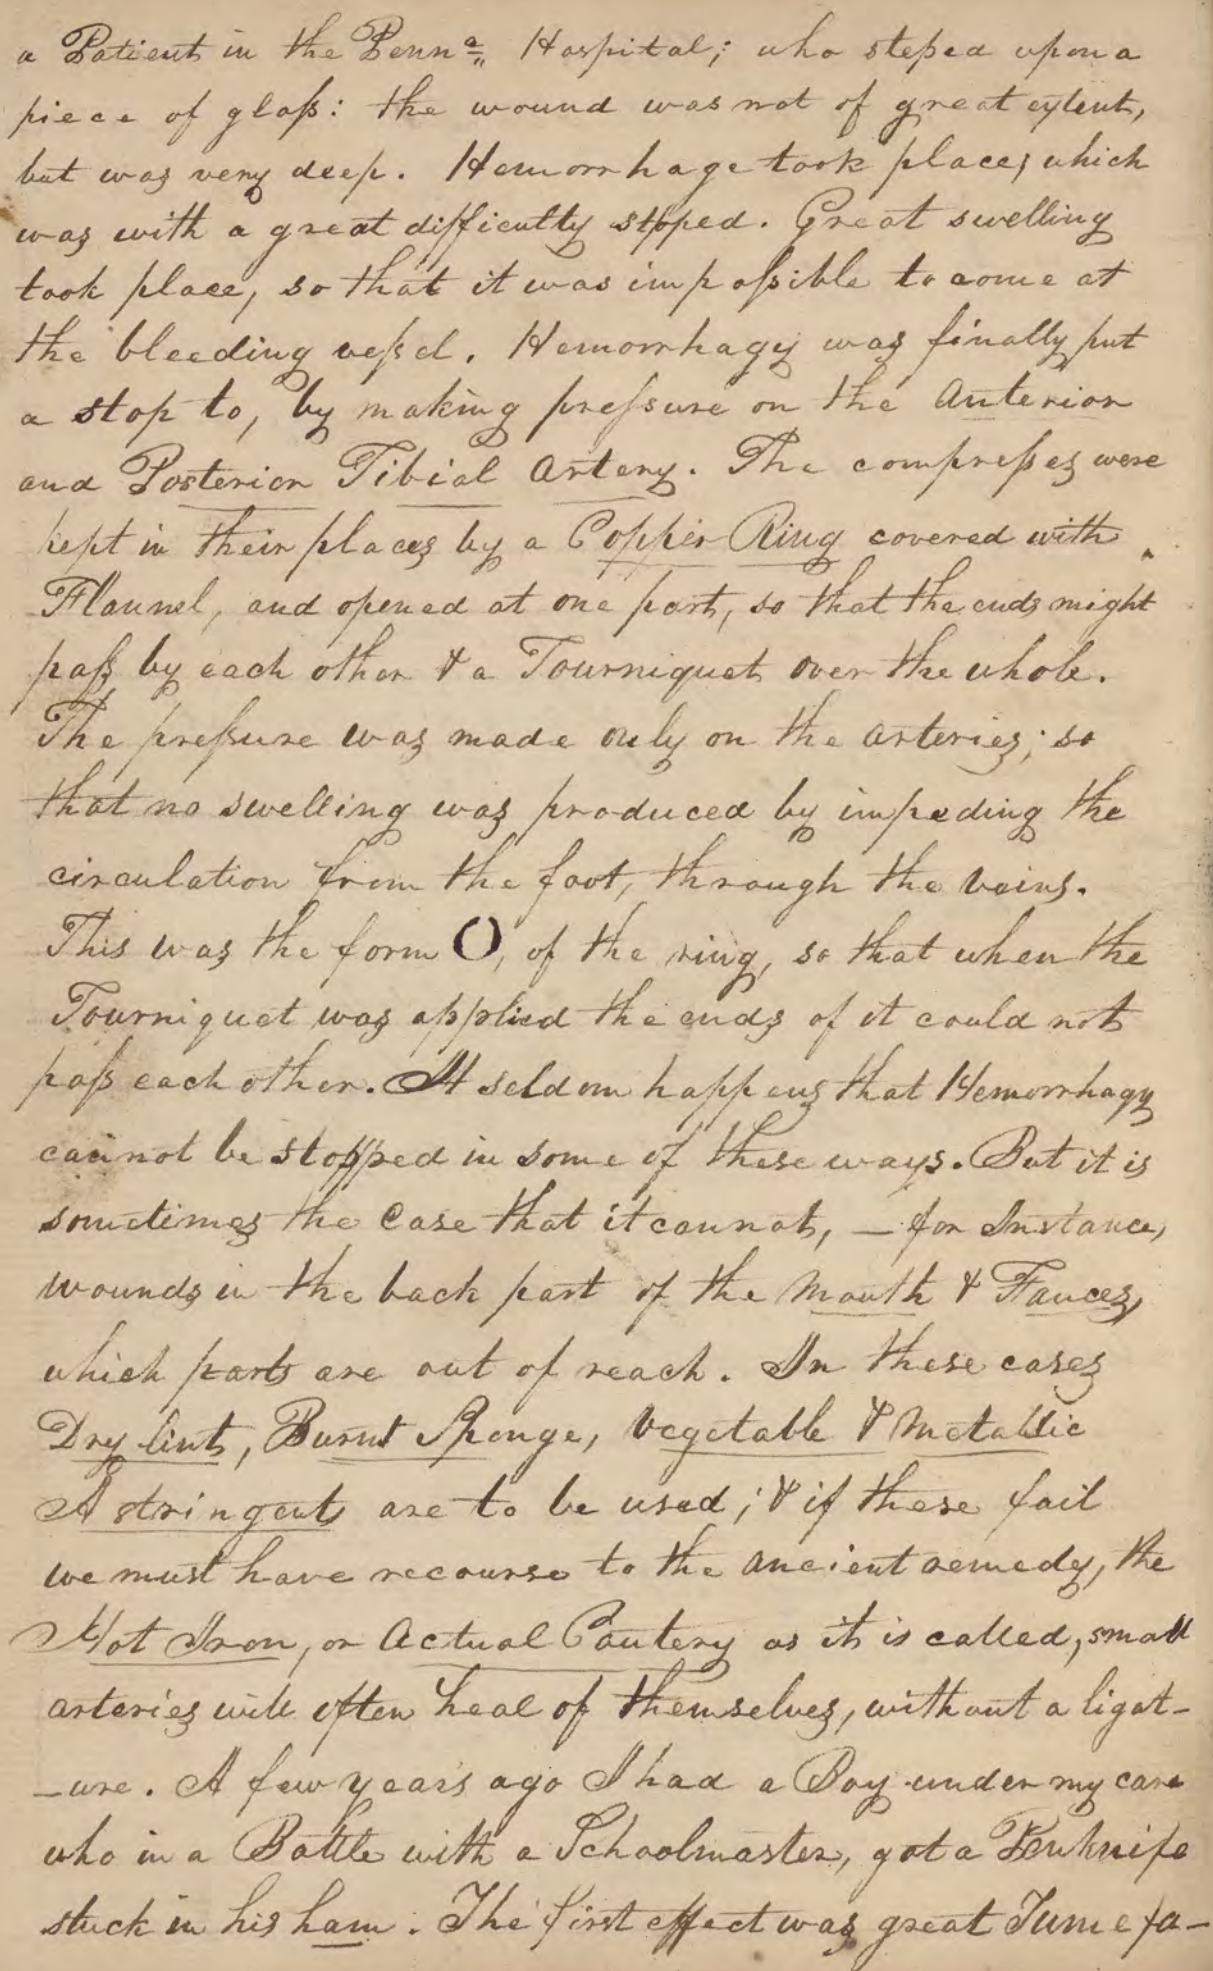 a Patient in the Pennª Hospital; who steped upon a
piece of glaſs: the wound was not of great extent,
but was very deep. Hemorrhage took place, which
was with a great difficulty stoped. Great swelling
took place, so that it was impoſsible to come at
the bleeding veſsel. Hemorrhagy was finally put
a stop to, by making preſsure on the Anterior
and Posterior Tibial Artery. The compreſses were
kept in their places by a Copper Ring covered with
Flannel, and opened at one part, so that the ends might
paſs by each other & a Tourniquet over the whole.
The preſsure was made only on the arteries; so
that no swelling was produced by impeding the
circulation from the foot, through the veins.
This was the form (), of the ring, so that when the
Tourniquet was applied the ends of it could not
paſs each other. It seldom happens that Hemorrhagy
cannot be stopped in some of these ways. But it is
sometimes the Case that it cannot, — for Instance,
wounds in the back part of the Mouth & Fauces,
which parts are out of reach. In these cases
Dry lint, Burnt Sponge, Vegetable & Metallic
Astringents are to be used; & if these fail
we must have recourse to the ancient remedy, the
Hot Iron, or Actual Cautery as it is called, small
arteries will often heal of themselves, without a ligat-
-ure. A few years ago I had a Boy under my care
who in a Battle with a Schoolmaster, got a Penknife
stuck in his ham. The first effect was great Tumefa-